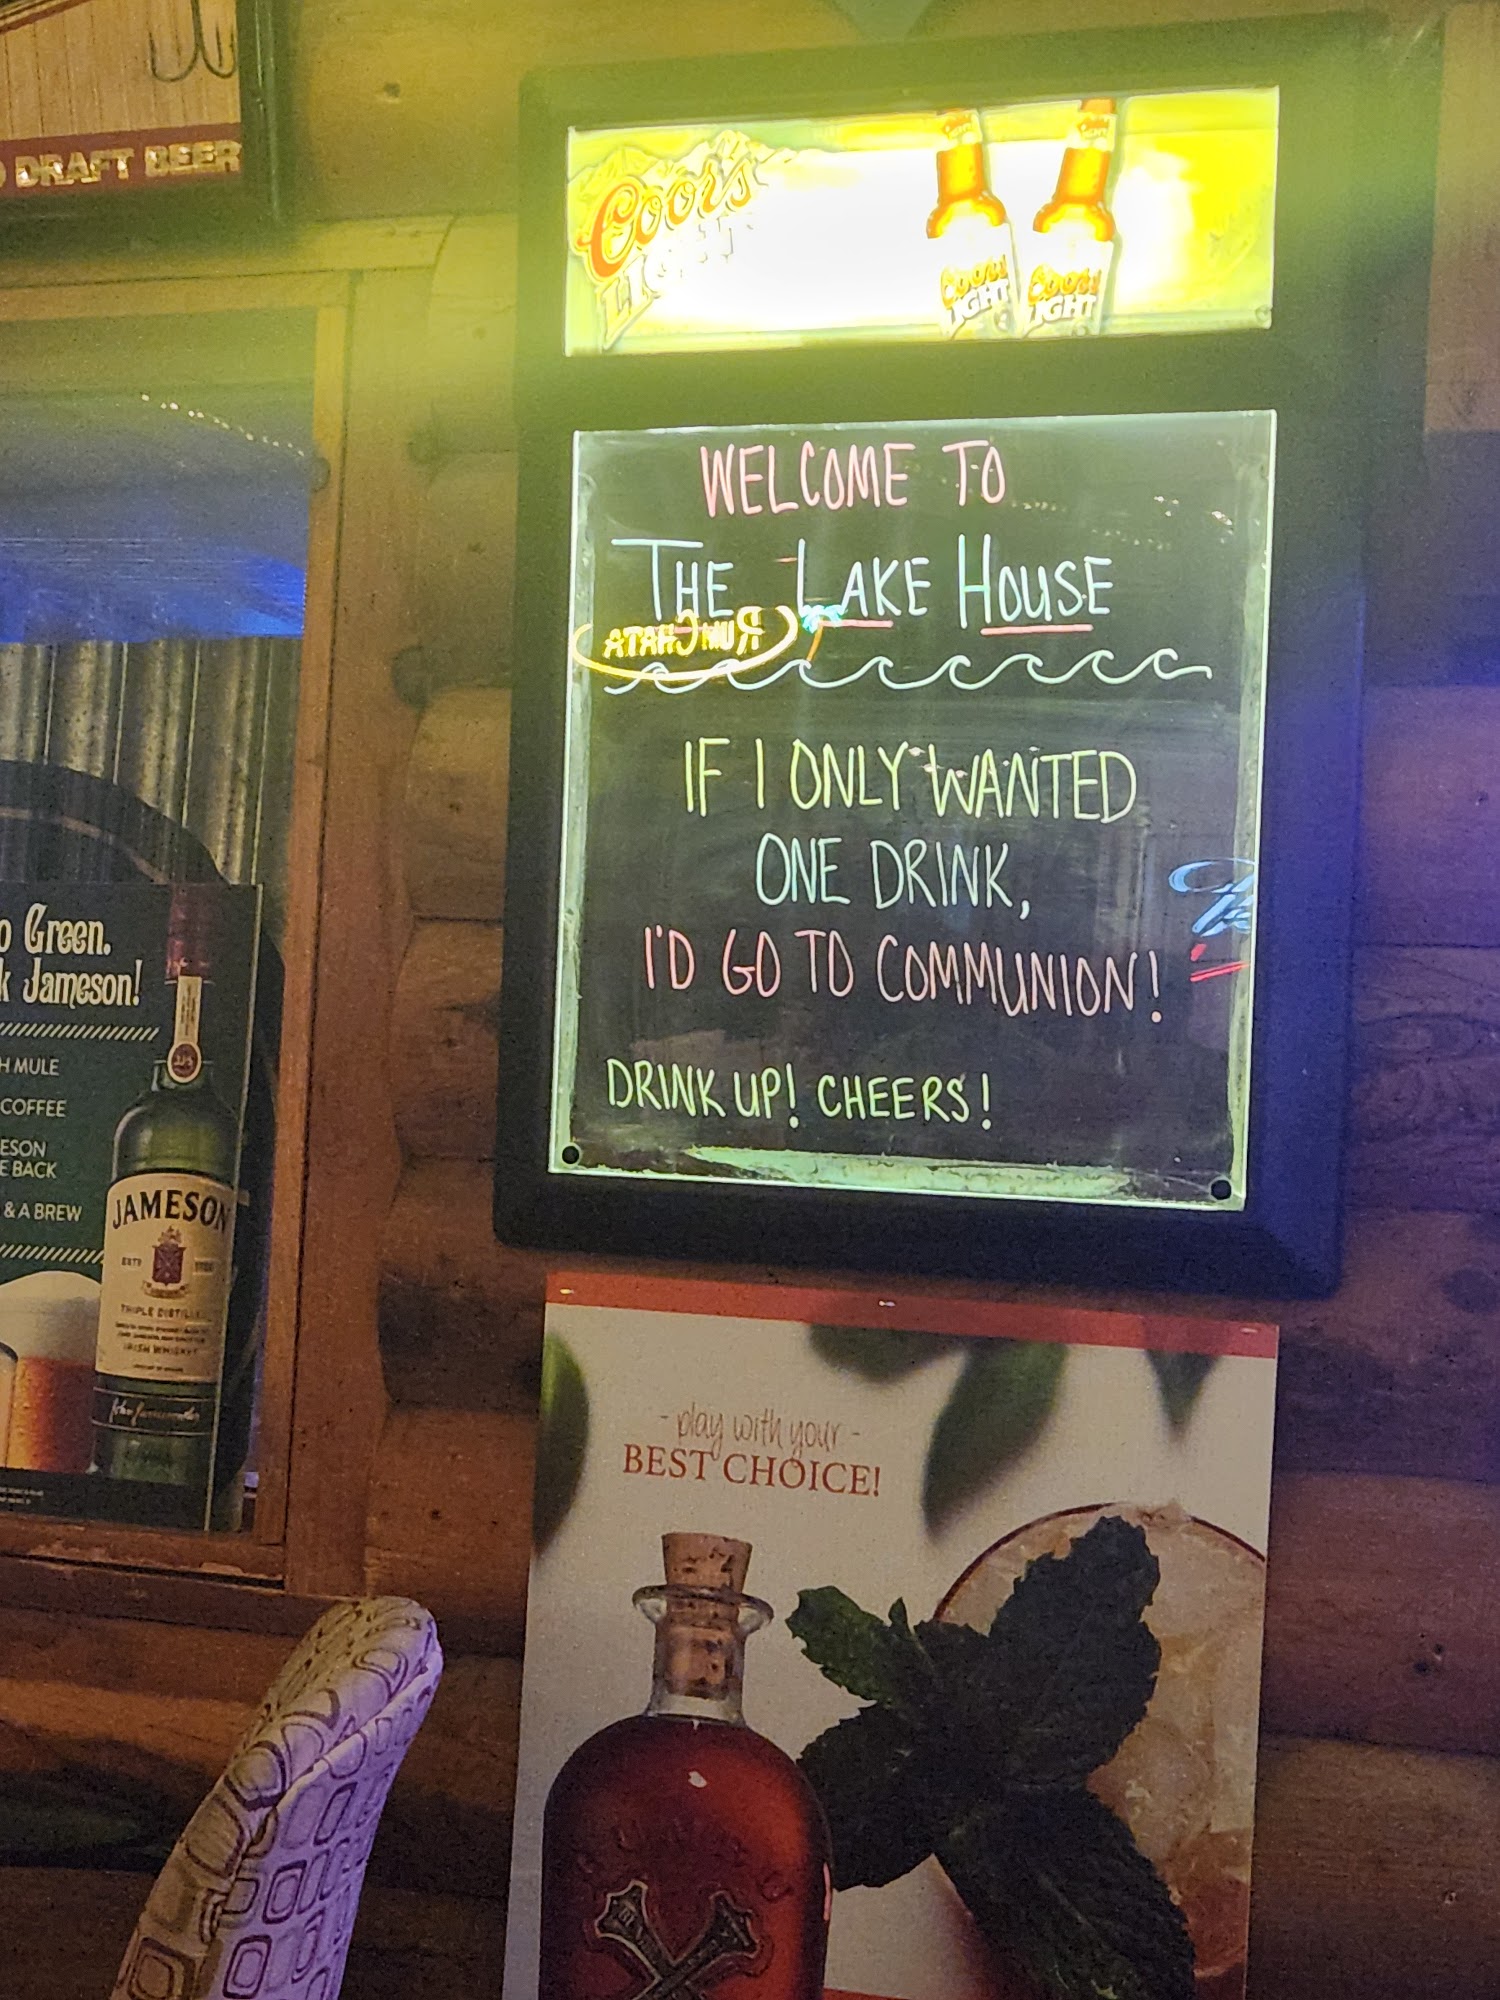 DRAFT BEER
Coors
LIGHT
Coors
LIGHT
Coors
LIGHT
WELCOME TO
THE LAKE HOUSE
RUMCHATA
IF I ONLY WANTED
ONE DRINK,
I'D GO TO COMMUNION!
DRINK UP! CHEERS!
Green.
Jameson!
MULE
COFFEE
BACK
& A BREW
JAMESON
TRIPLE DISTILLED
IRISH WHISKEY
- play with your -
BEST CHOICE!